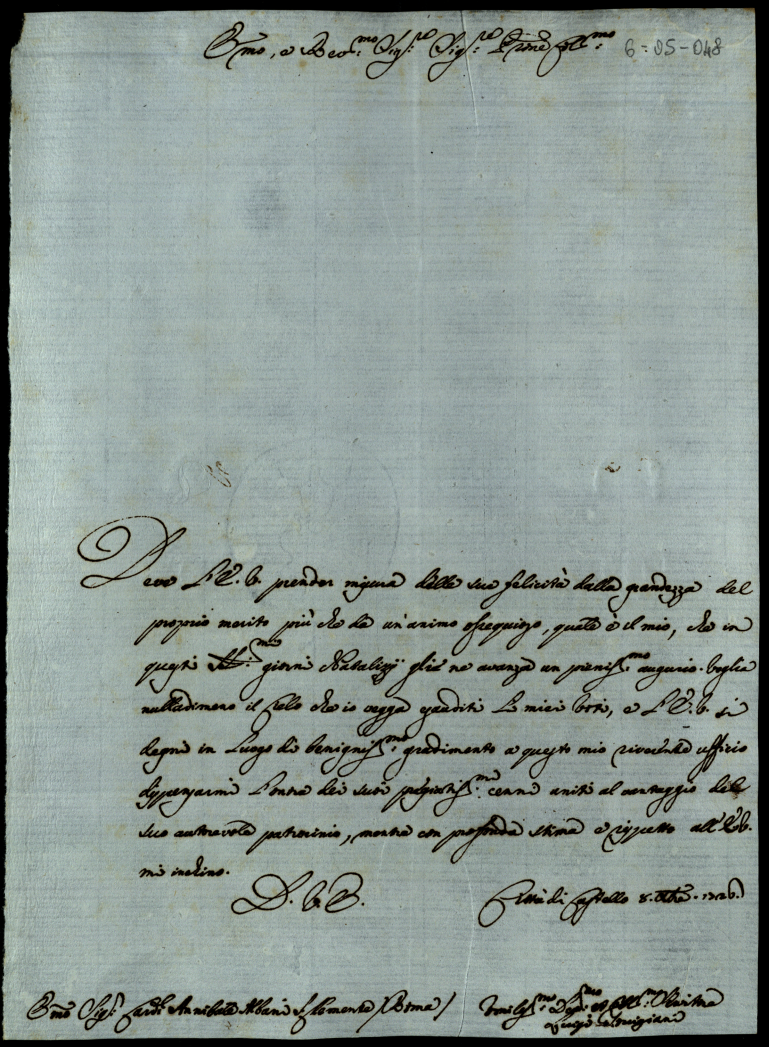 Emo, e Revmo: Sigre Sigre Prone Colmo:
6-05-048
Deve l'E. V. prender misura della sua felicità dalla grandezza del
proprio merito più che da un'animo ossequioso, quale è il mio, che in
questi SSmi: giorni Natalizj gliè ne avanza un pienissmo: augurio. Voglia
nulladimeno il Cielo che io vegga esauditi li miei voti, e l'E. V. si
degni in luogo di benignissmo: gradimento a questo mio riverente ufficio
dispensarmi l'onore dei suoi pregiatissmi: cenni uniti al vantaggio del
suo autorevole patrocinio, mentre con profonda stima e rispetto all'E. V.
mi inchino.
D. V. E.
Città di Castello 8. Xbre. 1726.
Emo Sigr: Cardl: Annibale Albani S. Clemente (Roma)
Umilissmo Devmo ed Obblmo Servitore